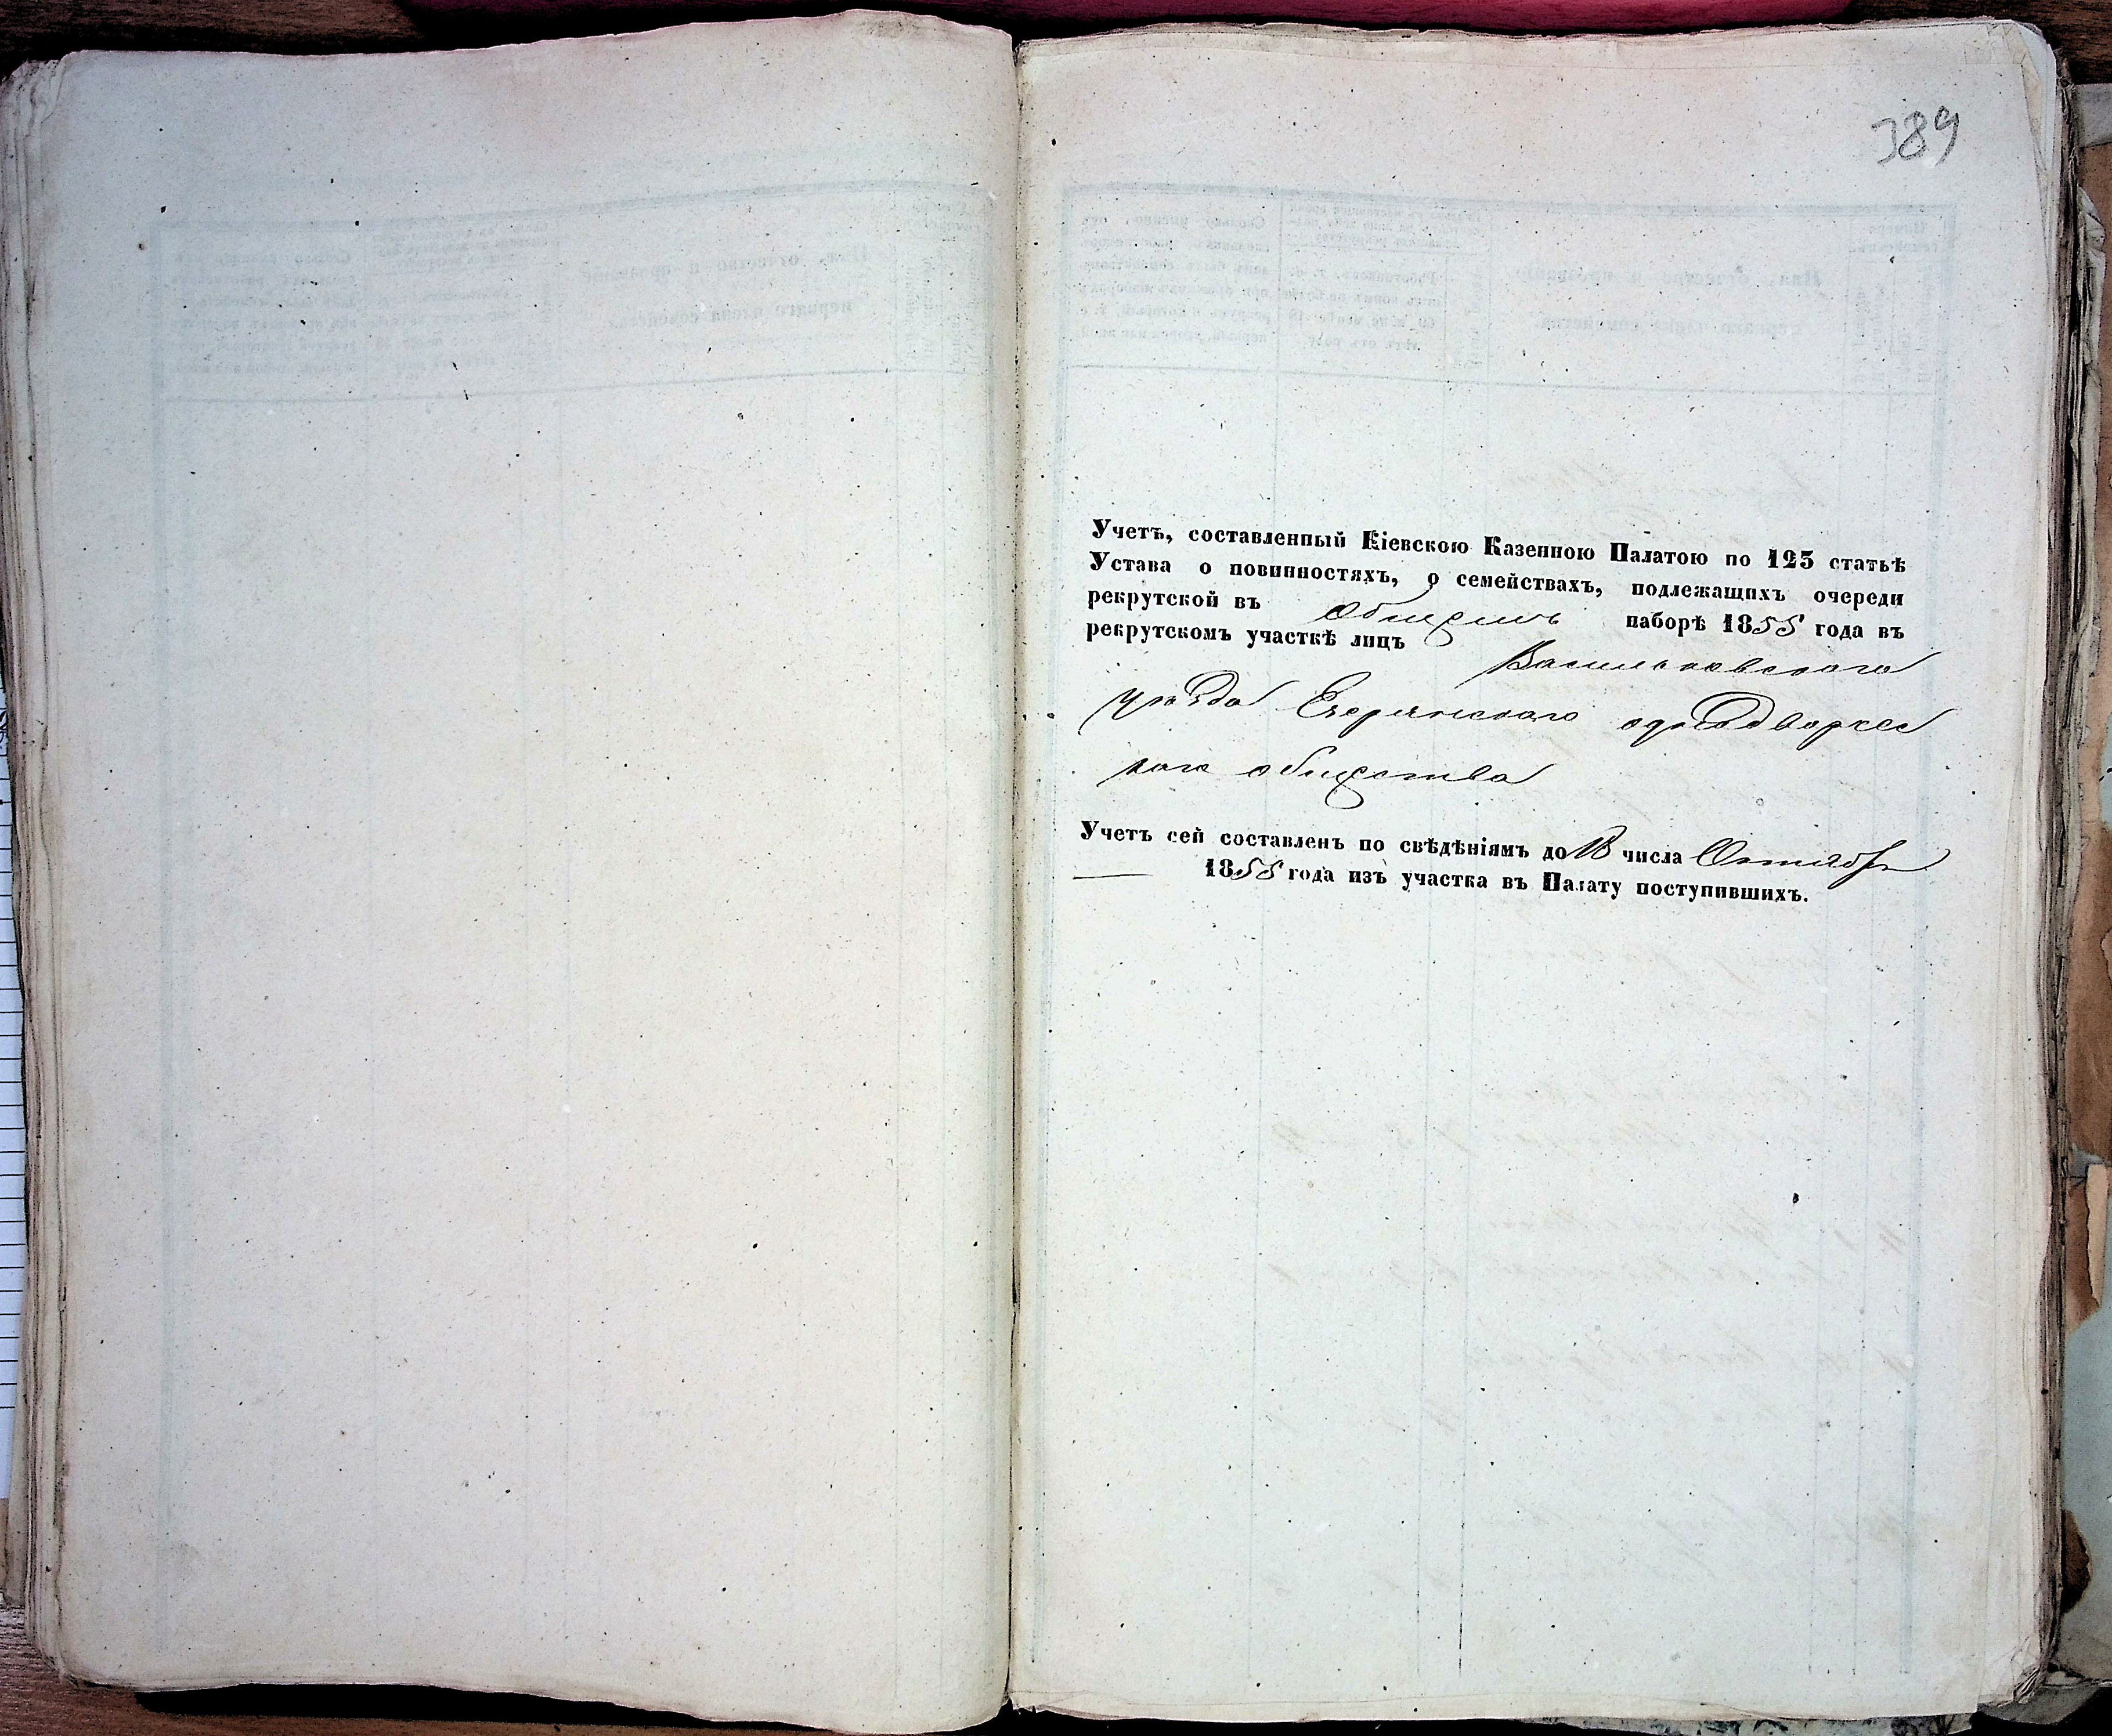 389
Учетъ, составленный Кіевскою Казенною Палатою по 123 статьѣ
Устава о повинностяхъ, о семействахъ, подлежащихъ очереди
рекрутской въ Общемъ наборѣ 1855 года въ
рекрутскомъ участкѣ лицъ Васильковскаго
уѣзда Езерянскаго однодворчес
каго общества
Учетъ сей составленъ по свѣдѣніямъ до числа Октября
1855 года изъ участка въ Палату поступившихъ.